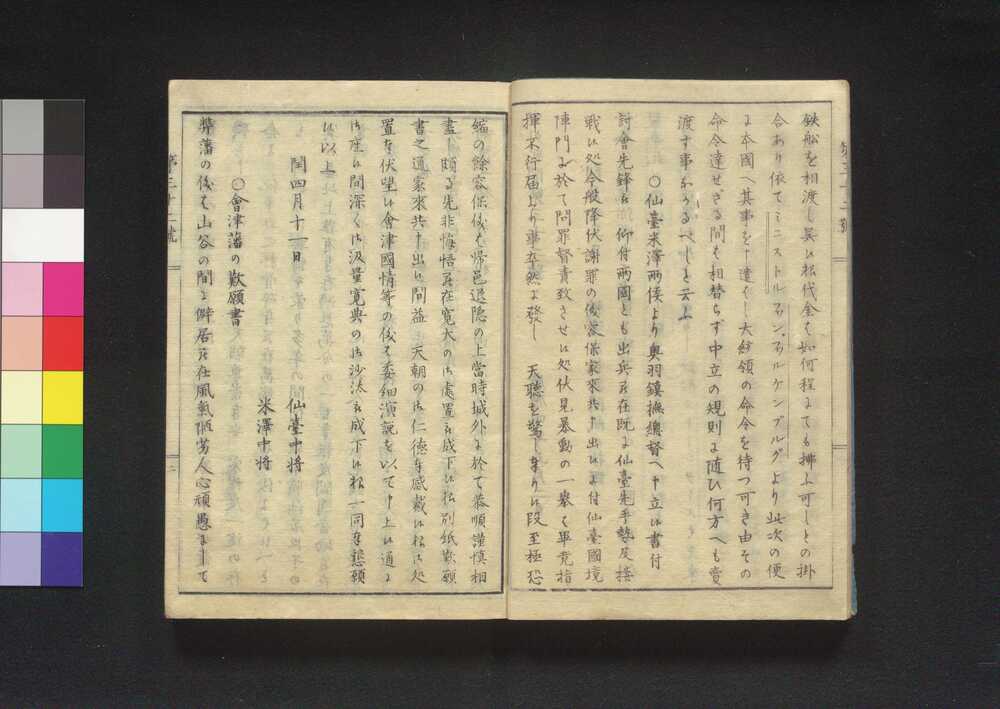 鉄舩を相渡し異ハ松代金も如何程にても拂ふ可しとの掛
合あり依てミニストル フヲンワルケンブルグより此次の便
に本國へ其事を申遣ハし大統領の命令を待つ可き由その
命令達せざる間も相替らず中立の規則に随ひ何方へも賣
渡す事あるべしと云
〇仙臺米澤両侯より奥羽鎮撫總督へ申立候書付
討會先鋒被仰付両國とも出兵罷在既に仙臺先手勢及接
戰候処今般降伏謝罪の儀容保家來共申出候に付仙臺國境
陣門に於て問罪督責致させ候処伏見暴動の一挙も畢竟指
揮不行届より事卒然に發し 天聴を驚し奉り候段至極恐
縮の餘容保儀も帰邑退隠の上當時城外に於て恭順謹慎相
盡し頗る先非悔悟罷在寛大の御處置被成下候様別紙歎願
書之通家來共申出候間益 天朝の御仁德奉感戴候様御処
置奉伏望候會津國情等の儀も委細演説を以て申上候通に
御座候間深く御汲量寛典の御沙汰被成下候様一同奉懇願
候以上
閏四月十一日 仙臺中将
米澤中将
〇會津藩の歎願書
弊藩の儀は山谷の間に僻居罷在風氣陋劣人心頑愚にして
第三十二號
二